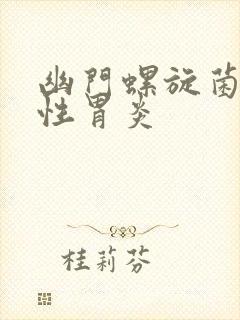 幽門螺旋菌
性胃炎
桂莉芬